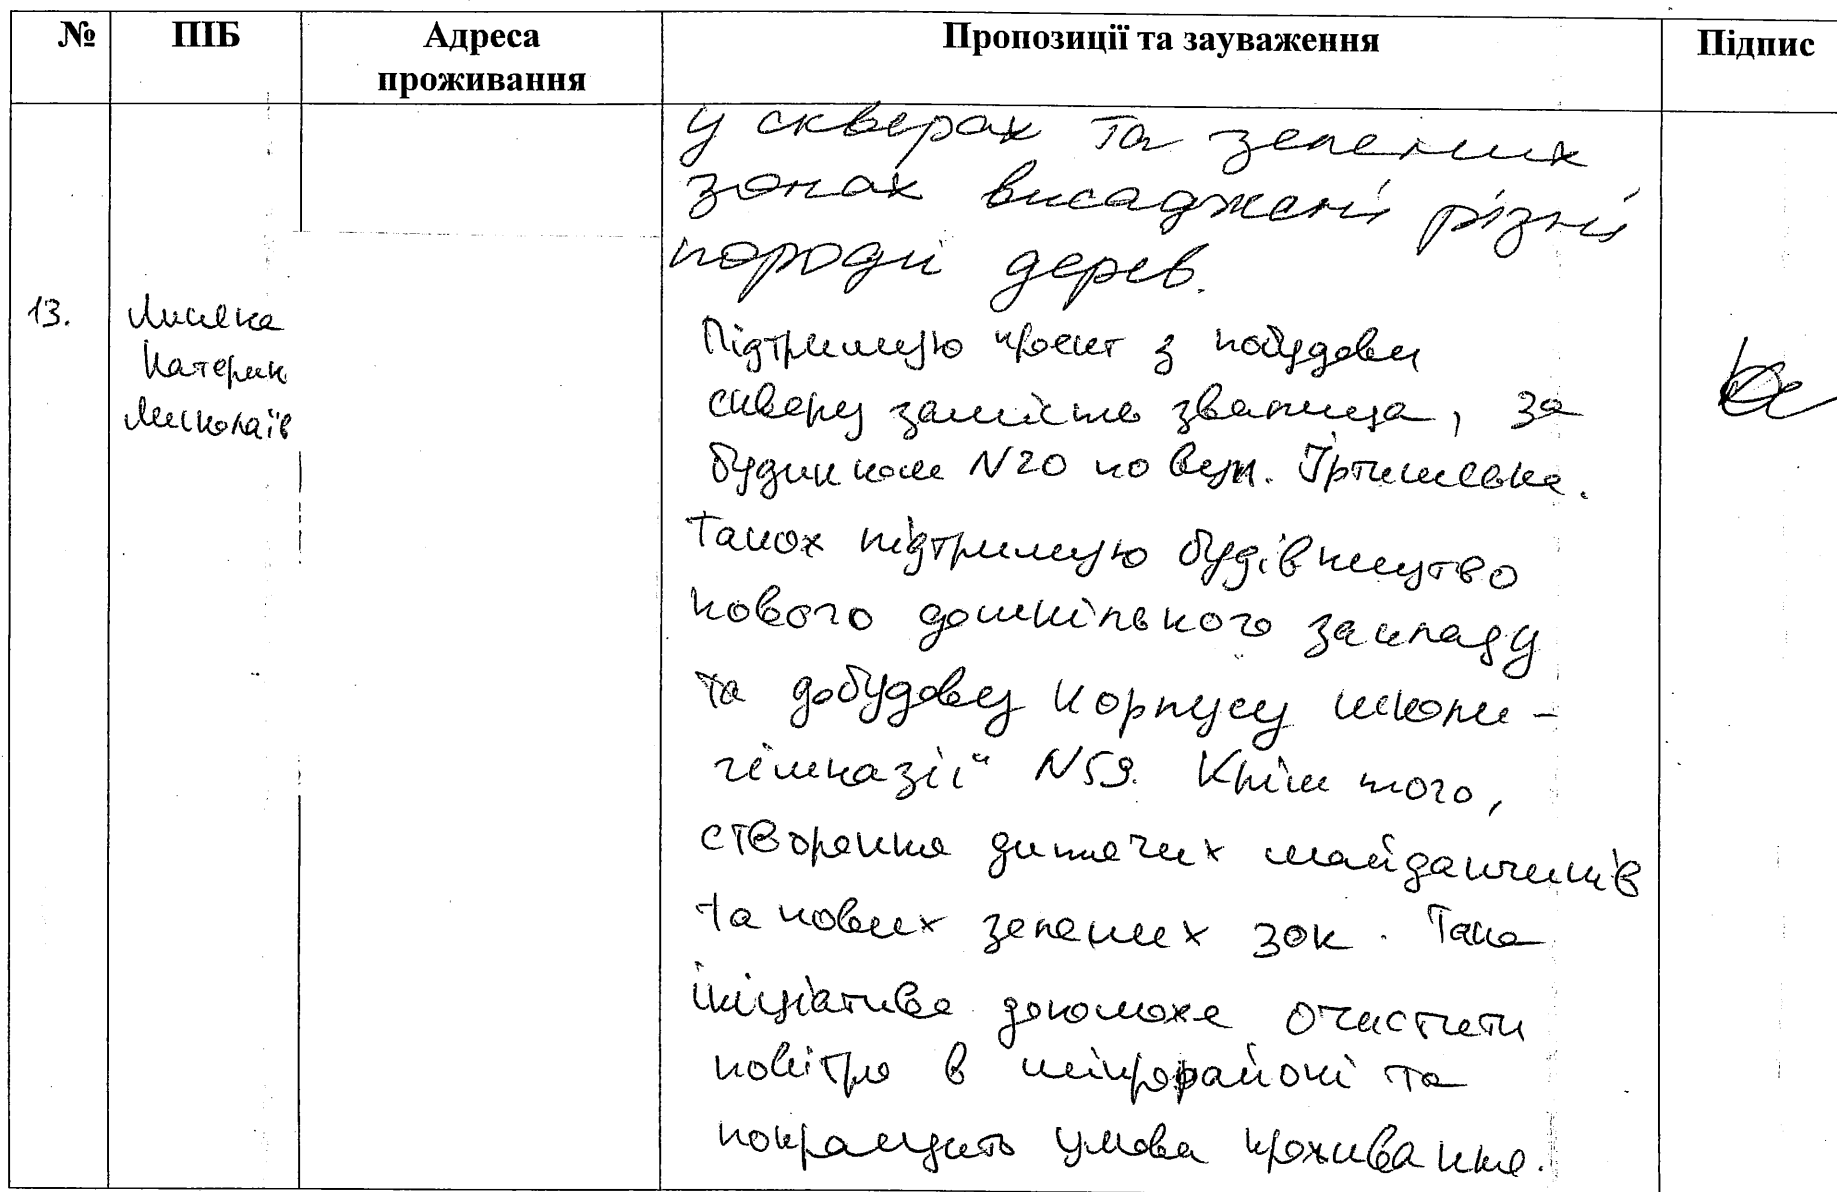 № ПІБ Адреса проживання Пропозиції та зауваження Підпис
у скверах та зелених
зонах висаджені різні
породи дерев.
13. Лисяка
Катерин
Миколаїв
Підтримую проект з побудови
скверу замість звалища, за
будинком N20 по вул. Іртишська.
Також підтримую будівництво
нового дошкільного закладу
та добудову корпусу школи-
гімназії" N59. Крім того,
створення дитячих майданчиків
та нових зелених зон. Така
ініціатива допоможе очистити
повітря в мікрорайоні та
покращить умова проживання.